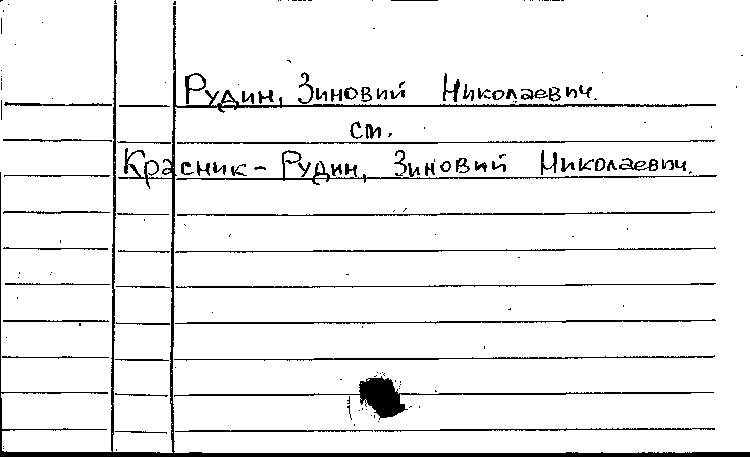 Рудин, Зиновий Николаевич.
см.
Красник - Рудин, Зиновий Николаевич.